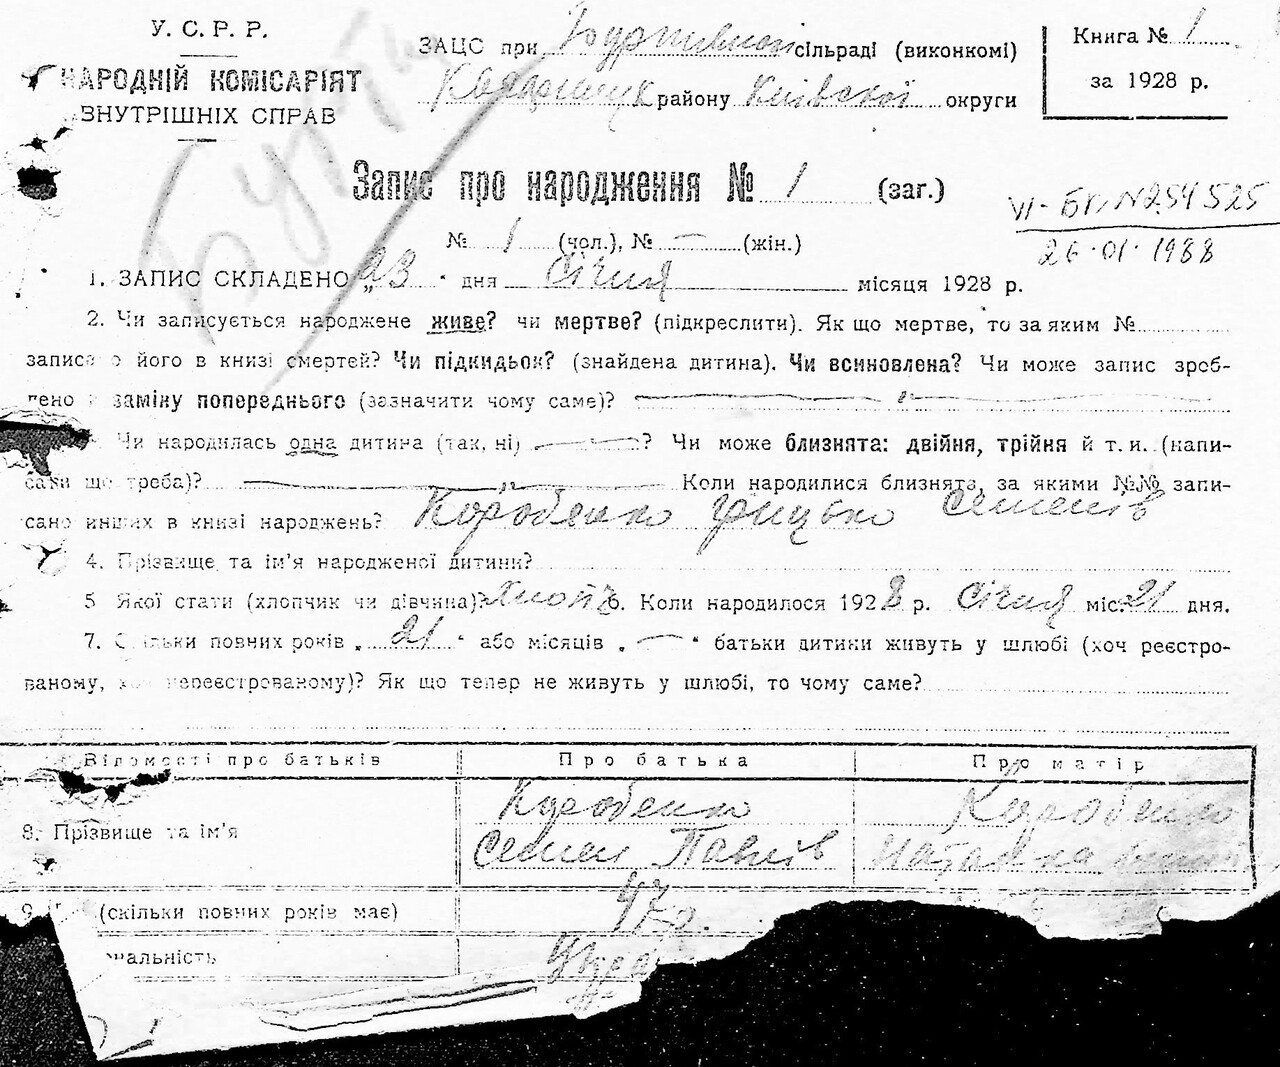 У. С. Р. Р.
НАРОДНІЙ КОМІСАРІЯТ
ВНУТРІШНІХ СПРАВ
ЗАЦС при сільраді (виконкомі)
району Київської округи
Книга № 1
за 1928 р.
Запис про народження № 1 (заг.)
№ 1 (чол.), № — (жін.)
VI-БК №254525
26.01.1988
1. ЗАПИС СКЛАДЕНО „23" дня Січня місяця 1928 р.
2. Чи записується народжене живе? чи мертве? (підкреслити). Як що мертве, то за яким №
записано його в книзі смертей? Чи підкидьок? (знайдена дитина). Чи всиновлена? Чи може запис зроб-
лено в заміну попереднього (зазначити чому саме)? — „ —
Чи народилась одна дитина (так, ні) —? Чи може близнята: двійня, трійня й т. и. (напи-
сати що треба)? — „ — Коли народилися близнята, за якими №№ запи-
сано инших в книзі народжень? Коробенко Грицько Семенів
4. Прізвище та ім'я народженої дитини?
5 Якої стати (хлопчик чи дівчина)? Хлопч 6. Коли народилося 1928 р. Січня міс. 21 дня.
7. Скільки повних років „ 21 " або місяців „ — " батьки дитини живуть у шлюбі (хоч реєстро-
ваному, хоч нереєстрованому)? Як що тепер не живуть у шлюбі, то чому саме?
Відомості про батьків Про батька Про матір
8. Прізвище та ім'я Коробенко Семен Павлів Коробенко
9 (скільки повних років має) 47 р.
нальність Укра